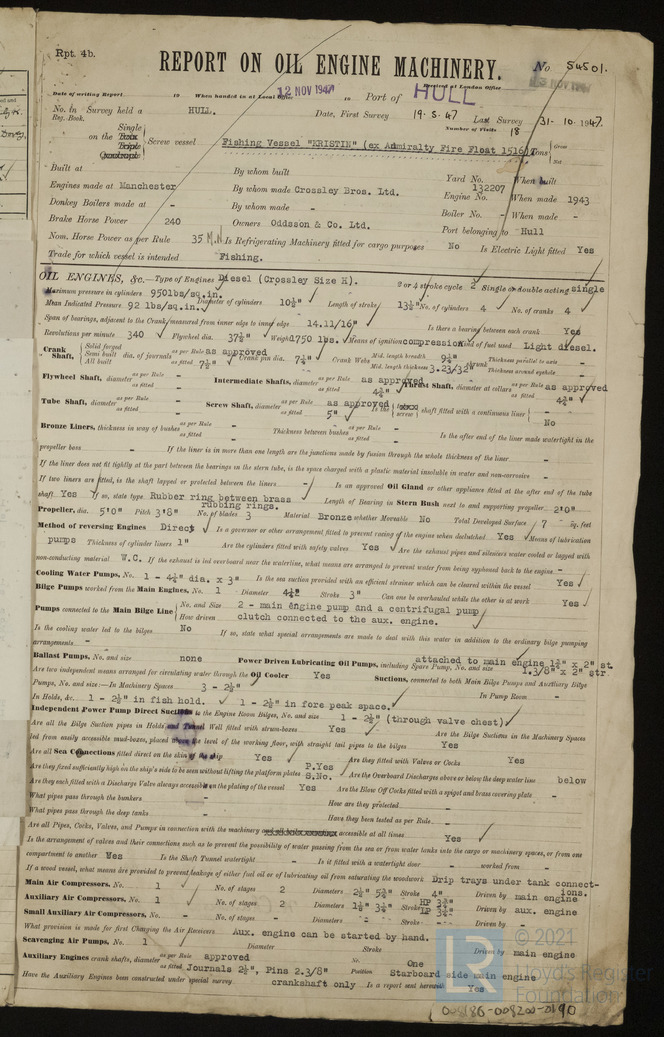 Rpt. 4b.
REPORT ON OIL ENGINE MACHINERY.
No. 54501.
Date of writing Report 19 When handed in at Local Office 12 NOV 1947 19 Port of HULL Received at London Office
No. in Survey held at HULL. Date, First Survey 19. 5. 47 Last Survey 31. 10. 1947.
Reg. Book. Number of Visits 18
Single
on the Twin
Triple
Quadruple
Screw vessel Fishing Vessel "KRISTIN" (ex Admiralty Fire Float Tons Gross
Net
Built at By whom built Yard No. When built
Engines made at Manchester By whom made Crossley Bros. Ltd. Engine No. 132207 When made 1943
Donkey Boilers made at - By whom made - Boiler No. - When made -
Brake Horse Power 240 Owners Oddsson & Co. Ltd. Port belonging to Hull
Nom. Horse Power as per Rule 35 M.N Is Refrigerating Machinery fitted for cargo purposes No Is Electric Light fitted Yes
Trade for which vessel is intended Fishing.
OIL ENGINES, &c.—Type of Engines Diesel (Crossley Size K). 2 or 4 stroke cycle 2 Single or double acting single
Maximum pressure in cylinders 950lbs/sq.in. Diameter of cylinders 10½" Length of stroke 13½" No. of cylinders 4 No. of cranks 4
Mean Indicated Pressure 92 lbs/sq.in.
Span of bearings, adjacent to the Crank, measured from inner edge to inner edge 14.11/16" Is there a bearing between each crank Yes
Revolutions per minute 340 Flywheel dia. 37½" Weight 1750 lbs. Means of ignition compression Kind of fuel used Light diesel.
Crank Shaft, Solid forged Semi built All built dia. of journals as per Rule as approved as fitted 7½" Crank pin dia. 7¼" Crank Webs Mid. length breadth 9½" Mid. length thickness 3.23/32" shrunk Thickness parallel to axis - Thickness around eyehole -
Flywheel Shaft, diameter as per Rule - as fitted - Intermediate Shafts, diameter as per Rule as approved as fitted 4¾" Thrust Shaft, diameter at collars as per Rule as approved as fitted 4¾"
Tube Shaft, diameter as per Rule - as fitted - Screw Shaft, diameter as per Rule as approved as fitted 5" Is the screw shaft fitted with a continuous liner No
Bronze Liners, thickness in way of bushes as per Rule - as fitted - Thickness between bushes as per Rule - as fitted - Is the after end of the liner made watertight in the
propeller boss - If the liner is in more than one length are the junctions made by fusion through the whole thickness of the liner -
If the liner does not fit tightly at the part between the bearings in the stern tube, is the space charged with a plastic material insoluble in water and non-corrosive -
If two liners are fitted, is the shaft lapped or protected between the liners - Is an approved Oil Gland or other appliance fitted at the after end of the tube
shaft Yes If so, state type Rubber ring between brass rubbing rings. Length of Bearing in Stern Bush next to and supporting propeller 2'0"
Propeller, dia. 5'0" Pitch 3'8" No. of blades 3 Material Bronze whether Moveable No Total Developed Surface 7 sq. feet
Method of reversing Engines Direct Is a governor or other arrangement fitted to prevent racing of the engine when declutched Yes Means of lubrication
pumps Thickness of cylinder liners 1" Are the cylinders fitted with safety valves Yes Are the exhaust pipes and silencers water cooled or lagged with
non-conducting material W.C. If the exhaust is led overboard near the waterline, what means are arranged to prevent water from being syphoned back to the engine -
Cooling Water Pumps, No. 1 - 4¼" dia. x 3" Is the sea suction provided with an efficient strainer which can be cleared within the vessel Yes
Bilge Pumps worked from the Main Engines, No. 1 Diameter 4¼" Stroke 3" Can one be overhauled while the other is at work Yes
Pumps connected to the Main Bilge Line No. and Size 2 - main engine pump and a centrifugal pump
How driven clutch connected to the aux. engine.
Is the cooling water led to the bilges No If so, state what special arrangements are made to deal with this water in addition to the ordinary bilge pumping
arrangements -
Ballast Pumps, No. and size none Power Driven Lubricating Oil Pumps, including Spare Pump, No. and size attached to main engine 1¾" x 2" st. 1.3/8" x 2" str
Are two independent means arranged for circulating water through the Oil Cooler Yes Suctions, connected to both Main Bilge Pumps and Auxiliary Bilge
Pumps, No. and size:—In Machinery Spaces 3 - 2½" In Pump Room -
In Holds, &c. 1 - 2½" in fish hold. 1 - 2½" in fore peak space.
Independent Power Pump Direct Suctions to the Engine Room Bilges, No. and size 1 - 2½" (through valve chest).
Are all the Bilge Suction pipes in Holds and Tunnel Well fitted with strum-boxes Yes Are the Bilge Suctions in the Machinery Spaces
led from easily accessible mud-boxes, placed above the level of the working floor, with straight tail pipes to the bilges Yes
Are all Sea Connections fitted direct on the skin of the ship Yes Are they fitted with Valves or Cocks Yes
Are they fixed sufficiently high on the ship's side to be seen without lifting the platform plates P.Yes S.No. Are the Overboard Discharges above or below the deep water line below
Are they each fitted with a Discharge Valve always accessible on the plating of the vessel Yes Are the Blow Off Cocks fitted with a spigot and brass covering plate -
What pipes pass through the bunkers - How are they protected -
What pipes pass through the deep tanks - Have they been tested as per Rule -
Are all Pipes, Cocks, Valves, and Pumps in connection with the machinery accessible at all times Yes
Is the arrangement of valves and their connections such as to prevent the possibility of water passing from the sea or from water tanks into the cargo or machinery spaces, or from one
compartment to another Yes Is the Shaft Tunnel watertight - Is it fitted with a watertight door - worked from -
If a wood vessel, what means are provided to prevent leakage of either fuel oil or of lubricating oil from saturating the woodwork Drip trays under tank connections.
Main Air Compressors, No. 1 No. of stages 2 Diameters 2½" 5¾" Stroke 4" Driven by main engine
Auxiliary Air Compressors, No. 1 No. of stages 2 Diameters 1½" 3¾" Stroke HP 3¾" LP 3¾" Driven by aux. engine
Small Auxiliary Air Compressors, No. - No. of stages - Diameters - Stroke - Driven by -
What provision is made for first Charging the Air Receivers Aux. engine can be started by hand.
Scavenging Air Pumps, No. 1 Diameter Stroke Driven by main engine
Auxiliary Engines crank shafts, diameter as per Rule approved as fitted Journals 2½", Pins 2.3/8" No. One Position Starboard side main engine
Have the Auxiliary Engines been constructed under special survey crankshaft only Is a report sent herewith Yes
© 2021
Lloyd's Register
Foundation
008186-008200-0190